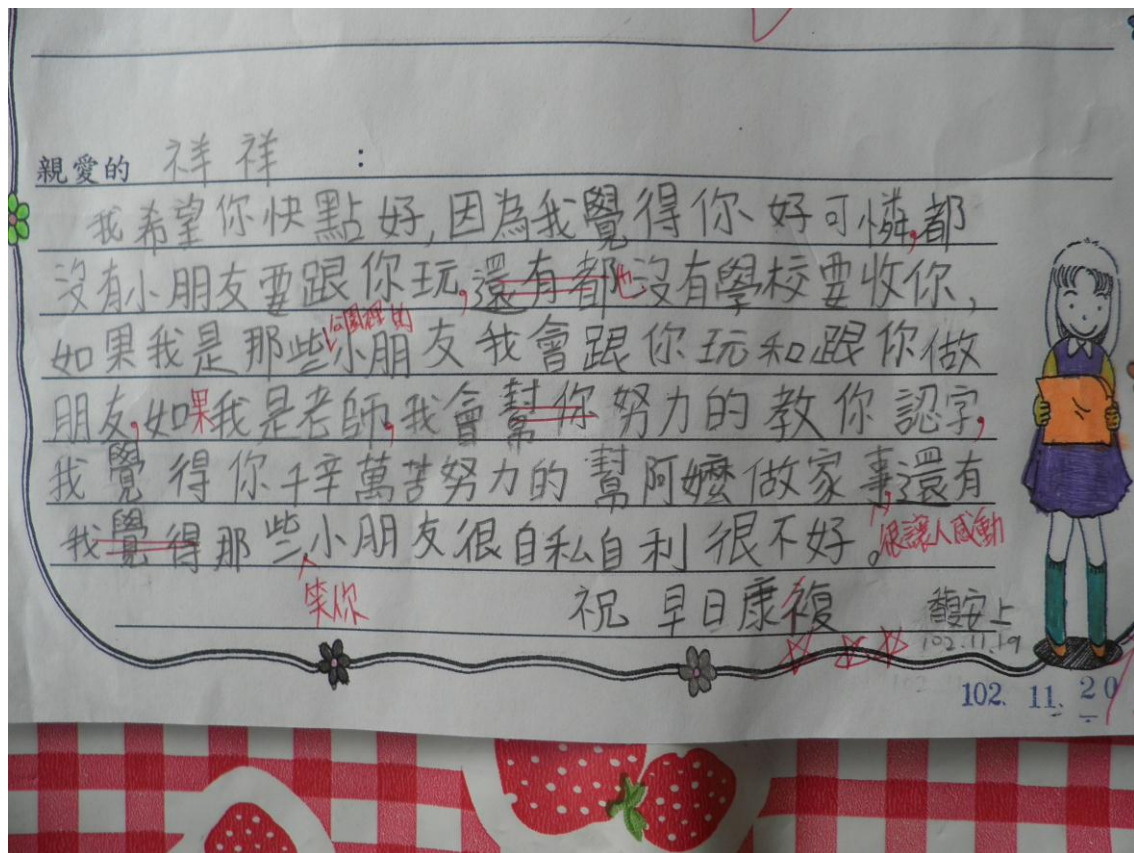 親愛的 祥祥 :
我希望你快點好,因為我覺得你好可憐,都
沒有小朋友要跟你玩,還有都也沒有學校要收你,
公園裡的
如果我是那些小朋友我會跟你玩和跟你做
朋友,如果我是老師,我會幫你努力的教你認字,
我覺得你千辛萬苦努力的幫阿嬤做家事,還有
我覺得那些小朋友很自私自利很不好。很讓人感動
笑你
祝 早日康複 馥安上
102.11.19
102. 11. 20